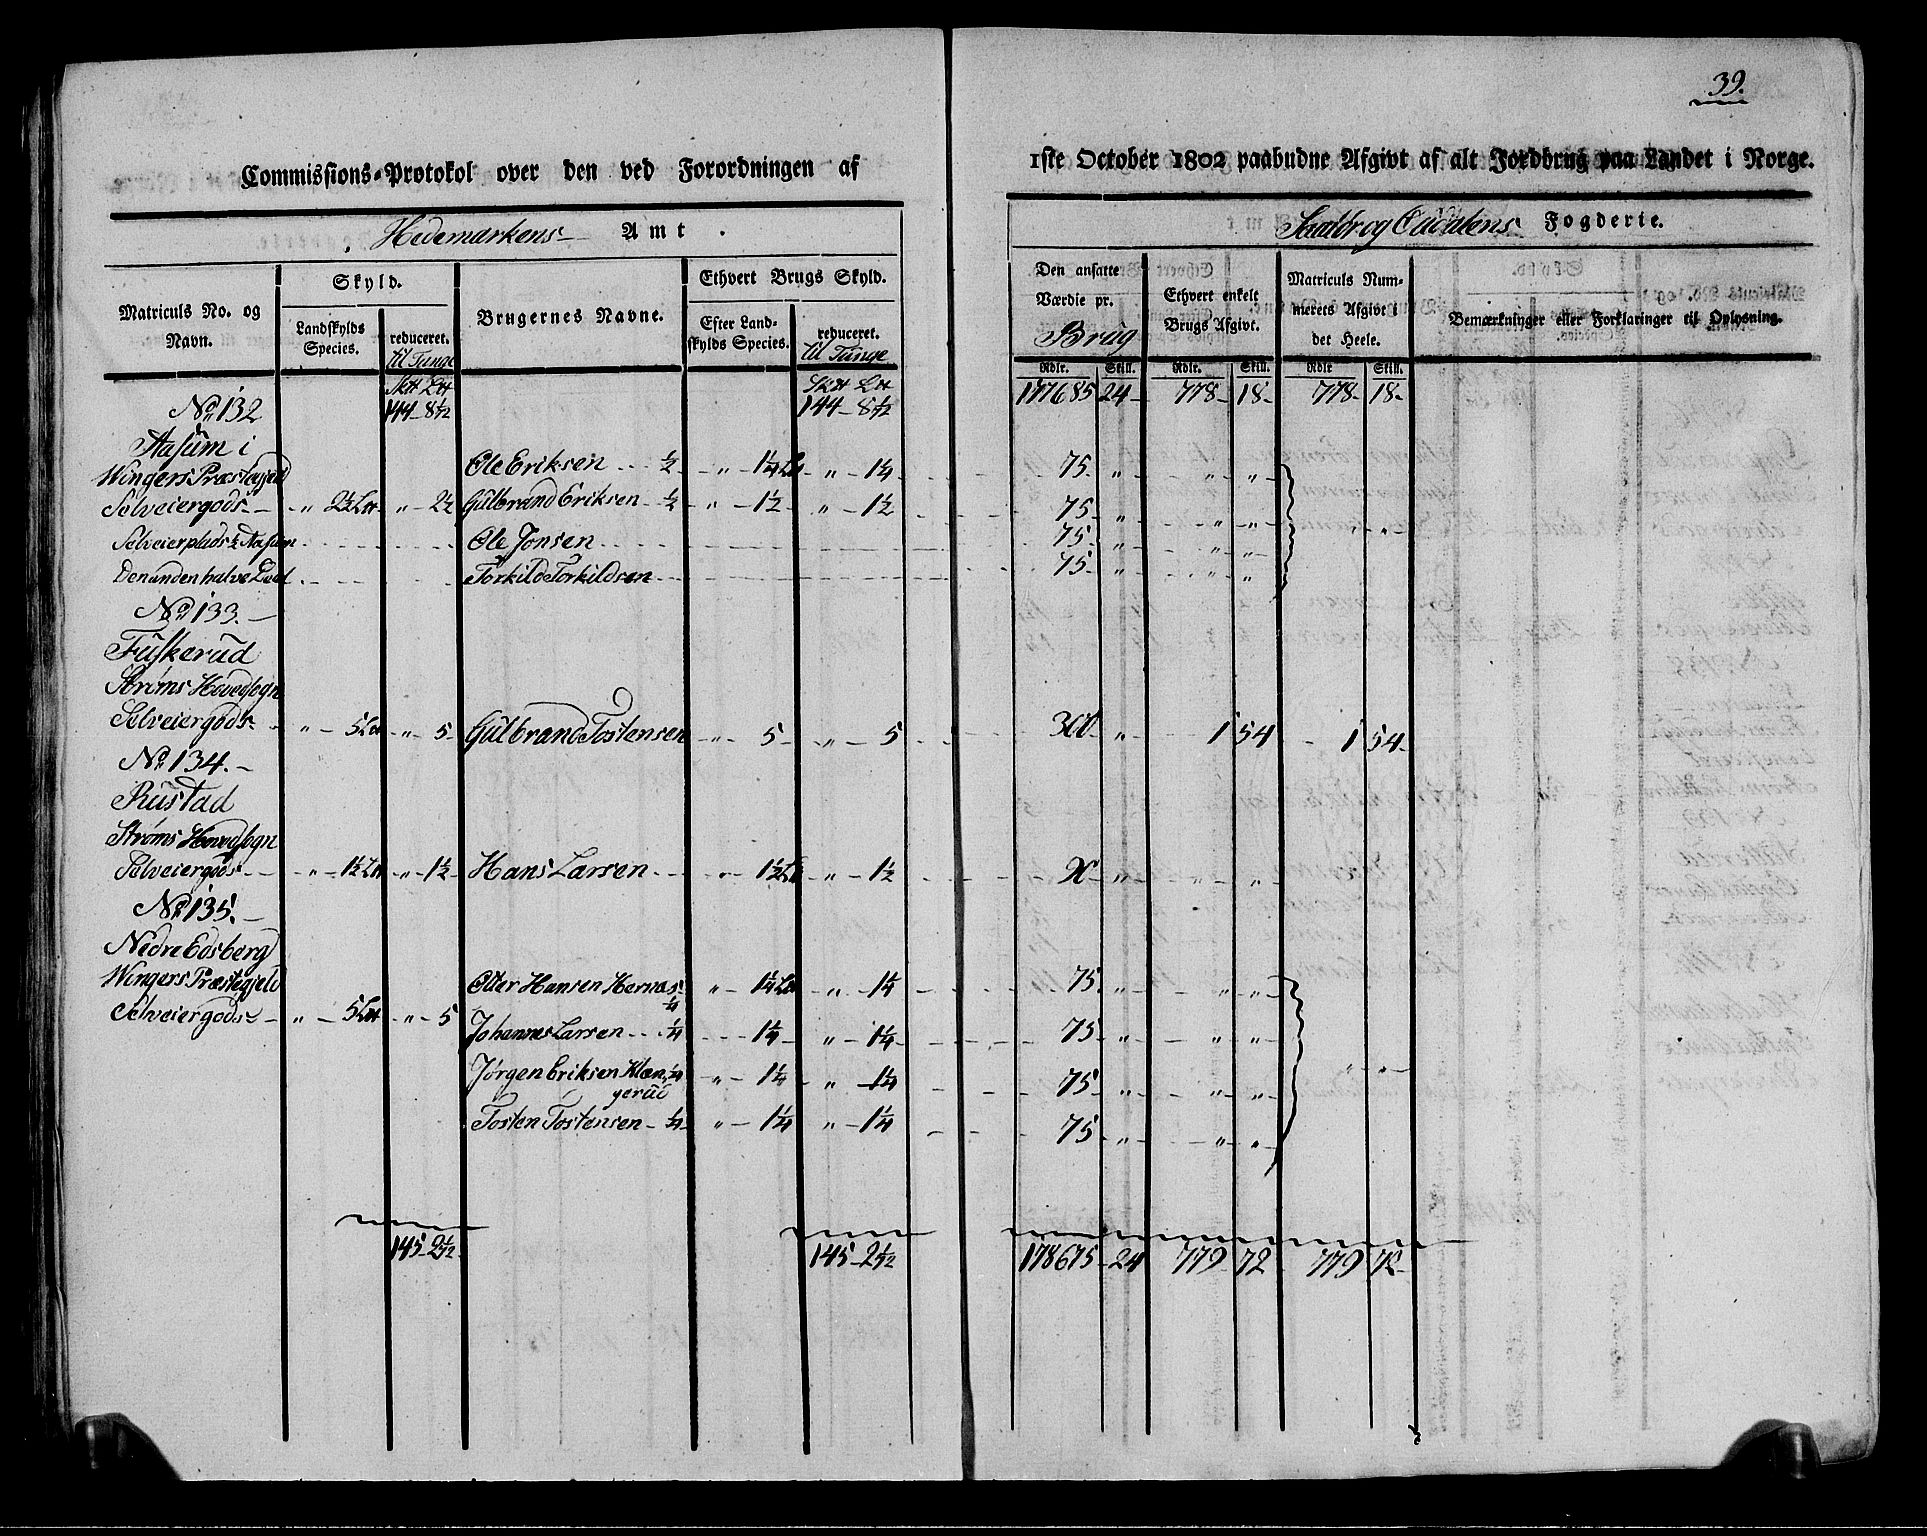 39.
Commissions-Protokol over den ved Forordningen af
1ste October 1802 paabudne Afgivt af alt Jordbrug paa Landet i Norge.
Hedemarkens Amt.
Fogderie.
Matriculs No. og Navn.
Skyld.
Landskylds Species.
reduceret. til Tunge
Brugernes Navne.
Ethvert Brugs Skyld.
Efter Landskylds Species.
reduceret. til Tunge
Den ansatte Værdie pr. Brug
Ethvert enkelt Brugs Afgivt.
Matriculs Nummerets Afgivt i det Heele.
Bemærkninger eller Forklaringer til Oplysning.
Rdlr. Skill. Rdlr. Skill. Rdlr Skill.
No 132 144 - 8½ 144 - 8½ 177685 24 - 778 - 18 - 778 - 18 -
Aasum i
Wingers Præstegjeld Ole Eriksen ½ - " 1¼ " - 1¼ 75 - " - " - "
Selveiergods - " - 2½ " - 2½ Gulbrand Eriksen - ½ " - 1½ " - 1½ 75 - " - " - "
Selveierplads ½ Aasum Ole Jonsen 75 - " - " - "
Den anden halve Deel Torkild Torkildsen 75 - " - " - "
No 133. -
Fuskerud
Strøms Hovedsogn
Selveiergods - " - 5 " - 5 - Gulbrand Tostensen " - 5 - " - 5 300 - " - 1 54 - 1 54 -
No 134. -
Rustad
Strøms Hovedsogn
Selveiergods - " - 1½ " - 1½ Hans Larsen " - 1½ " - 1½ " - " - "
No 135. -
Nedre Edsberg
Wingers Præstegjeld Otter Hansen Hernæs ¼ " - 1¼ " - 1¼ 75 - " - " - "
Selveiergods - " - 5 " - 5 Johannes Larsen - ¼ - 1¼ " - 1¼ 75 - " - " - "
Jørgen Eriksen Klæn ¼ " - 1¼ " - 1¼ 75 - " - " - "
gerud
Tosten Tostensen - ¼ " - 1¼ " - 1¼ 75 - " - " - "
145 - 2½ 145 - 2½ 178675 - 24 779 72 779 72 -